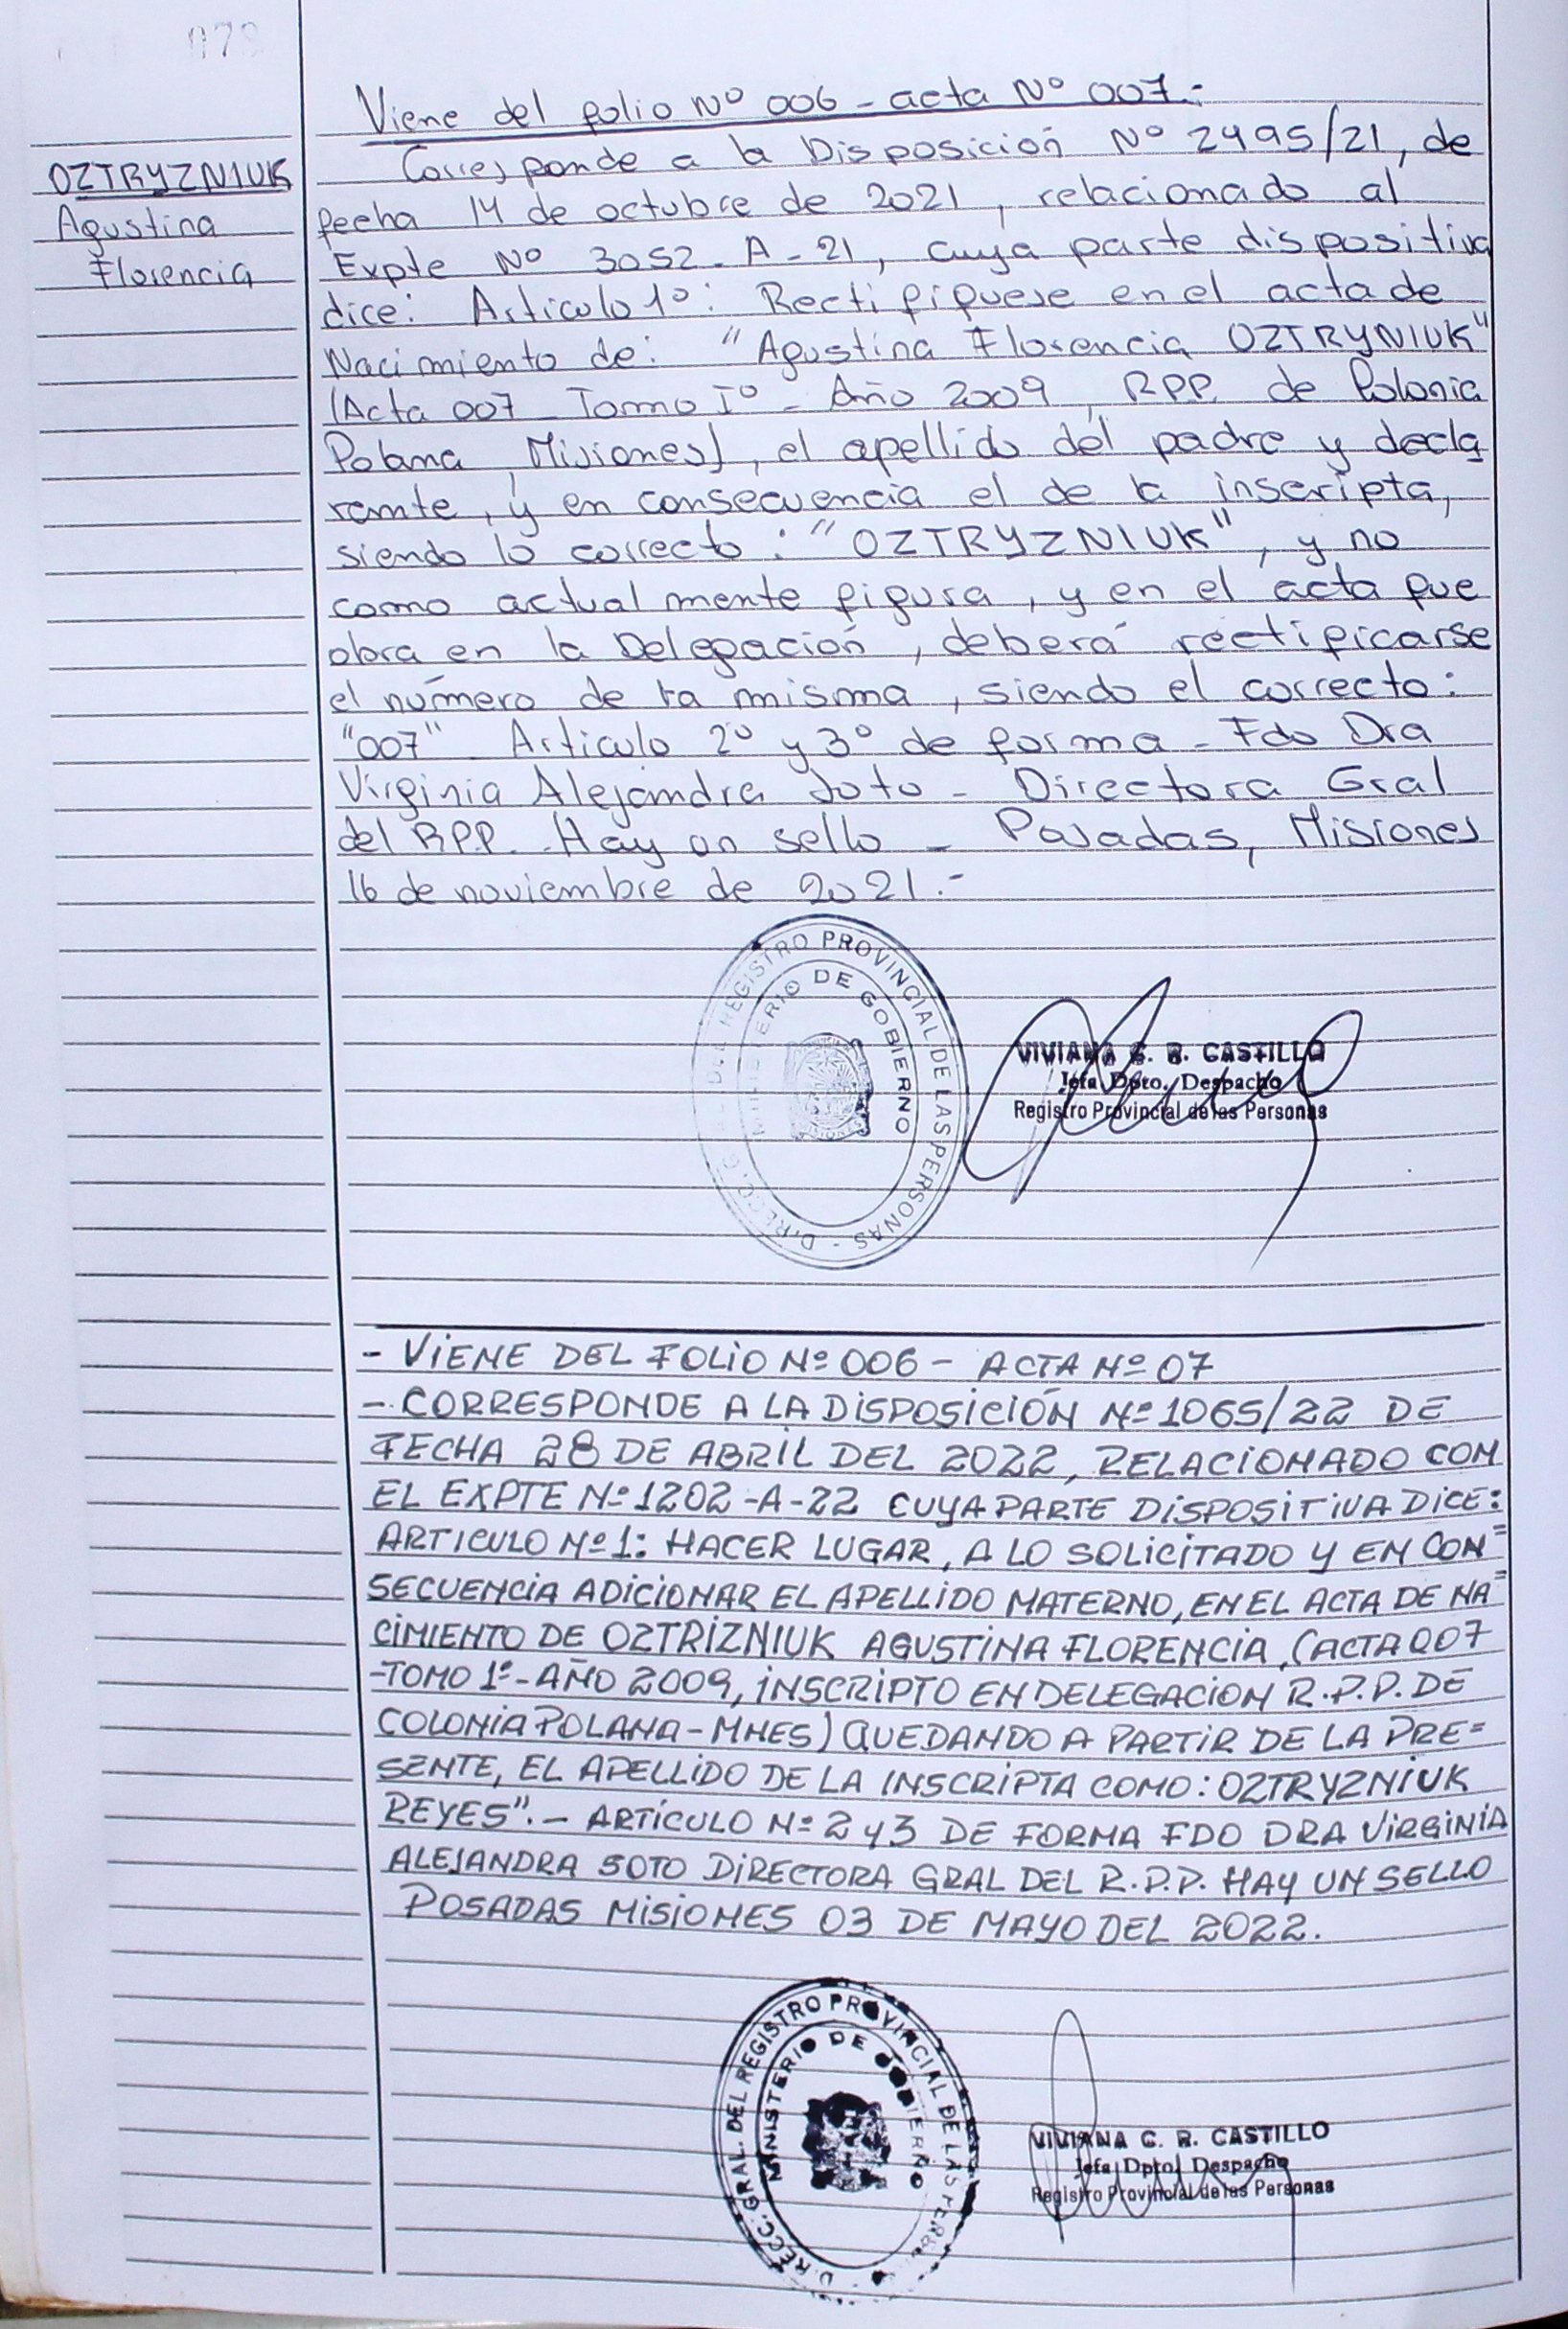 078
OZTRYZNIUK
Agustina
Florencia
Viene del folio Nº 006 - acta Nº 007.-
Corresponde a la Disposición Nº 2495/21, de
fecha 14 de octubre de 2021, relacionado al
Expte Nº 3052 - A - 21, cuya parte dispositiva
dice: Articulo 1º: Rectifiquese en el acta de
Nacimiento de: "Agustina Florencia OZTRYNIUK"
(Acta 007 - Tomo Iº - Año 2009, RPP. de Colonia
Polana, Misiones), el apellido del padre y decla
rante, y en consecuencia el de la inscripta,
siendo lo correcto: "OZTRYZNIUK", y no
como actualmente figura, y en el acta que
obra en la Delegación, deberá rectificarse
el número de la misma, siendo el correcto:
"007" Articulo 2º y 3º de forma - Fdo Dra
Virginia Alejandra Soto - Directora Gral
del RPP. - Hay un sello - Posadas, Misiones
16 de noviembre de 2021.-
DIRECC. GRAL. DEL REGISTRO PROVINCIAL DE LAS PERSONAS -
MINISTERIO DE GOBIERNO
VIVIANA C. R. CASTILLO
Jefa Dpto. Despacho
Registro Provincial de las Personas
- VIENE DEL FOLIO Nº 006 - ACTA Nº 07
- CORRESPONDE A LA DISPOSICIÓN Nº 1065/22 DE
FECHA 28 DE ABRIL DEL 2022, RELACIONADO CON
EL EXPTE Nº 1202 - A - 22 CUYA PARTE DISPOSITIVA DICE:
ARTICULO Nº 1: HACER LUGAR, A LO SOLICITADO Y EN CON=
SECUENCIA ADICIONAR EL APELLIDO MATERNO, EN EL ACTA DE NA=
CIMIENTO DE OZTRIZNIUK AGUSTINA FLORENCIA, (ACTA 007
-TOMO 1º - AÑO 2009, INSCRIPTO EN DELEGACION R.P.P. DE
COLONIA POLANA - MNES) QUEDANDO A PARTIR DE LA PRE=
SENTE, EL APELLIDO DE LA INSCRIPTA COMO: OZTRYZNIUK
REYES". - ARTÍCULO Nº 2 y 3 DE FORMA FDO DRA VIRGINIA
ALEJANDRA SOTO DIRECTORA GRAL DEL R.P.P. HAY UN SELLO
POSADAS MISIONES 03 DE MAYO DEL 2022.
DIRECC. GRAL. DEL REGISTRO PROVINCIAL DE LAS PERSO
MINISTERIO DE GOBIERNO
VIVIANA C. R. CASTILLO
Jefa Dpto. Despacho
Registro Provincial de las Personas